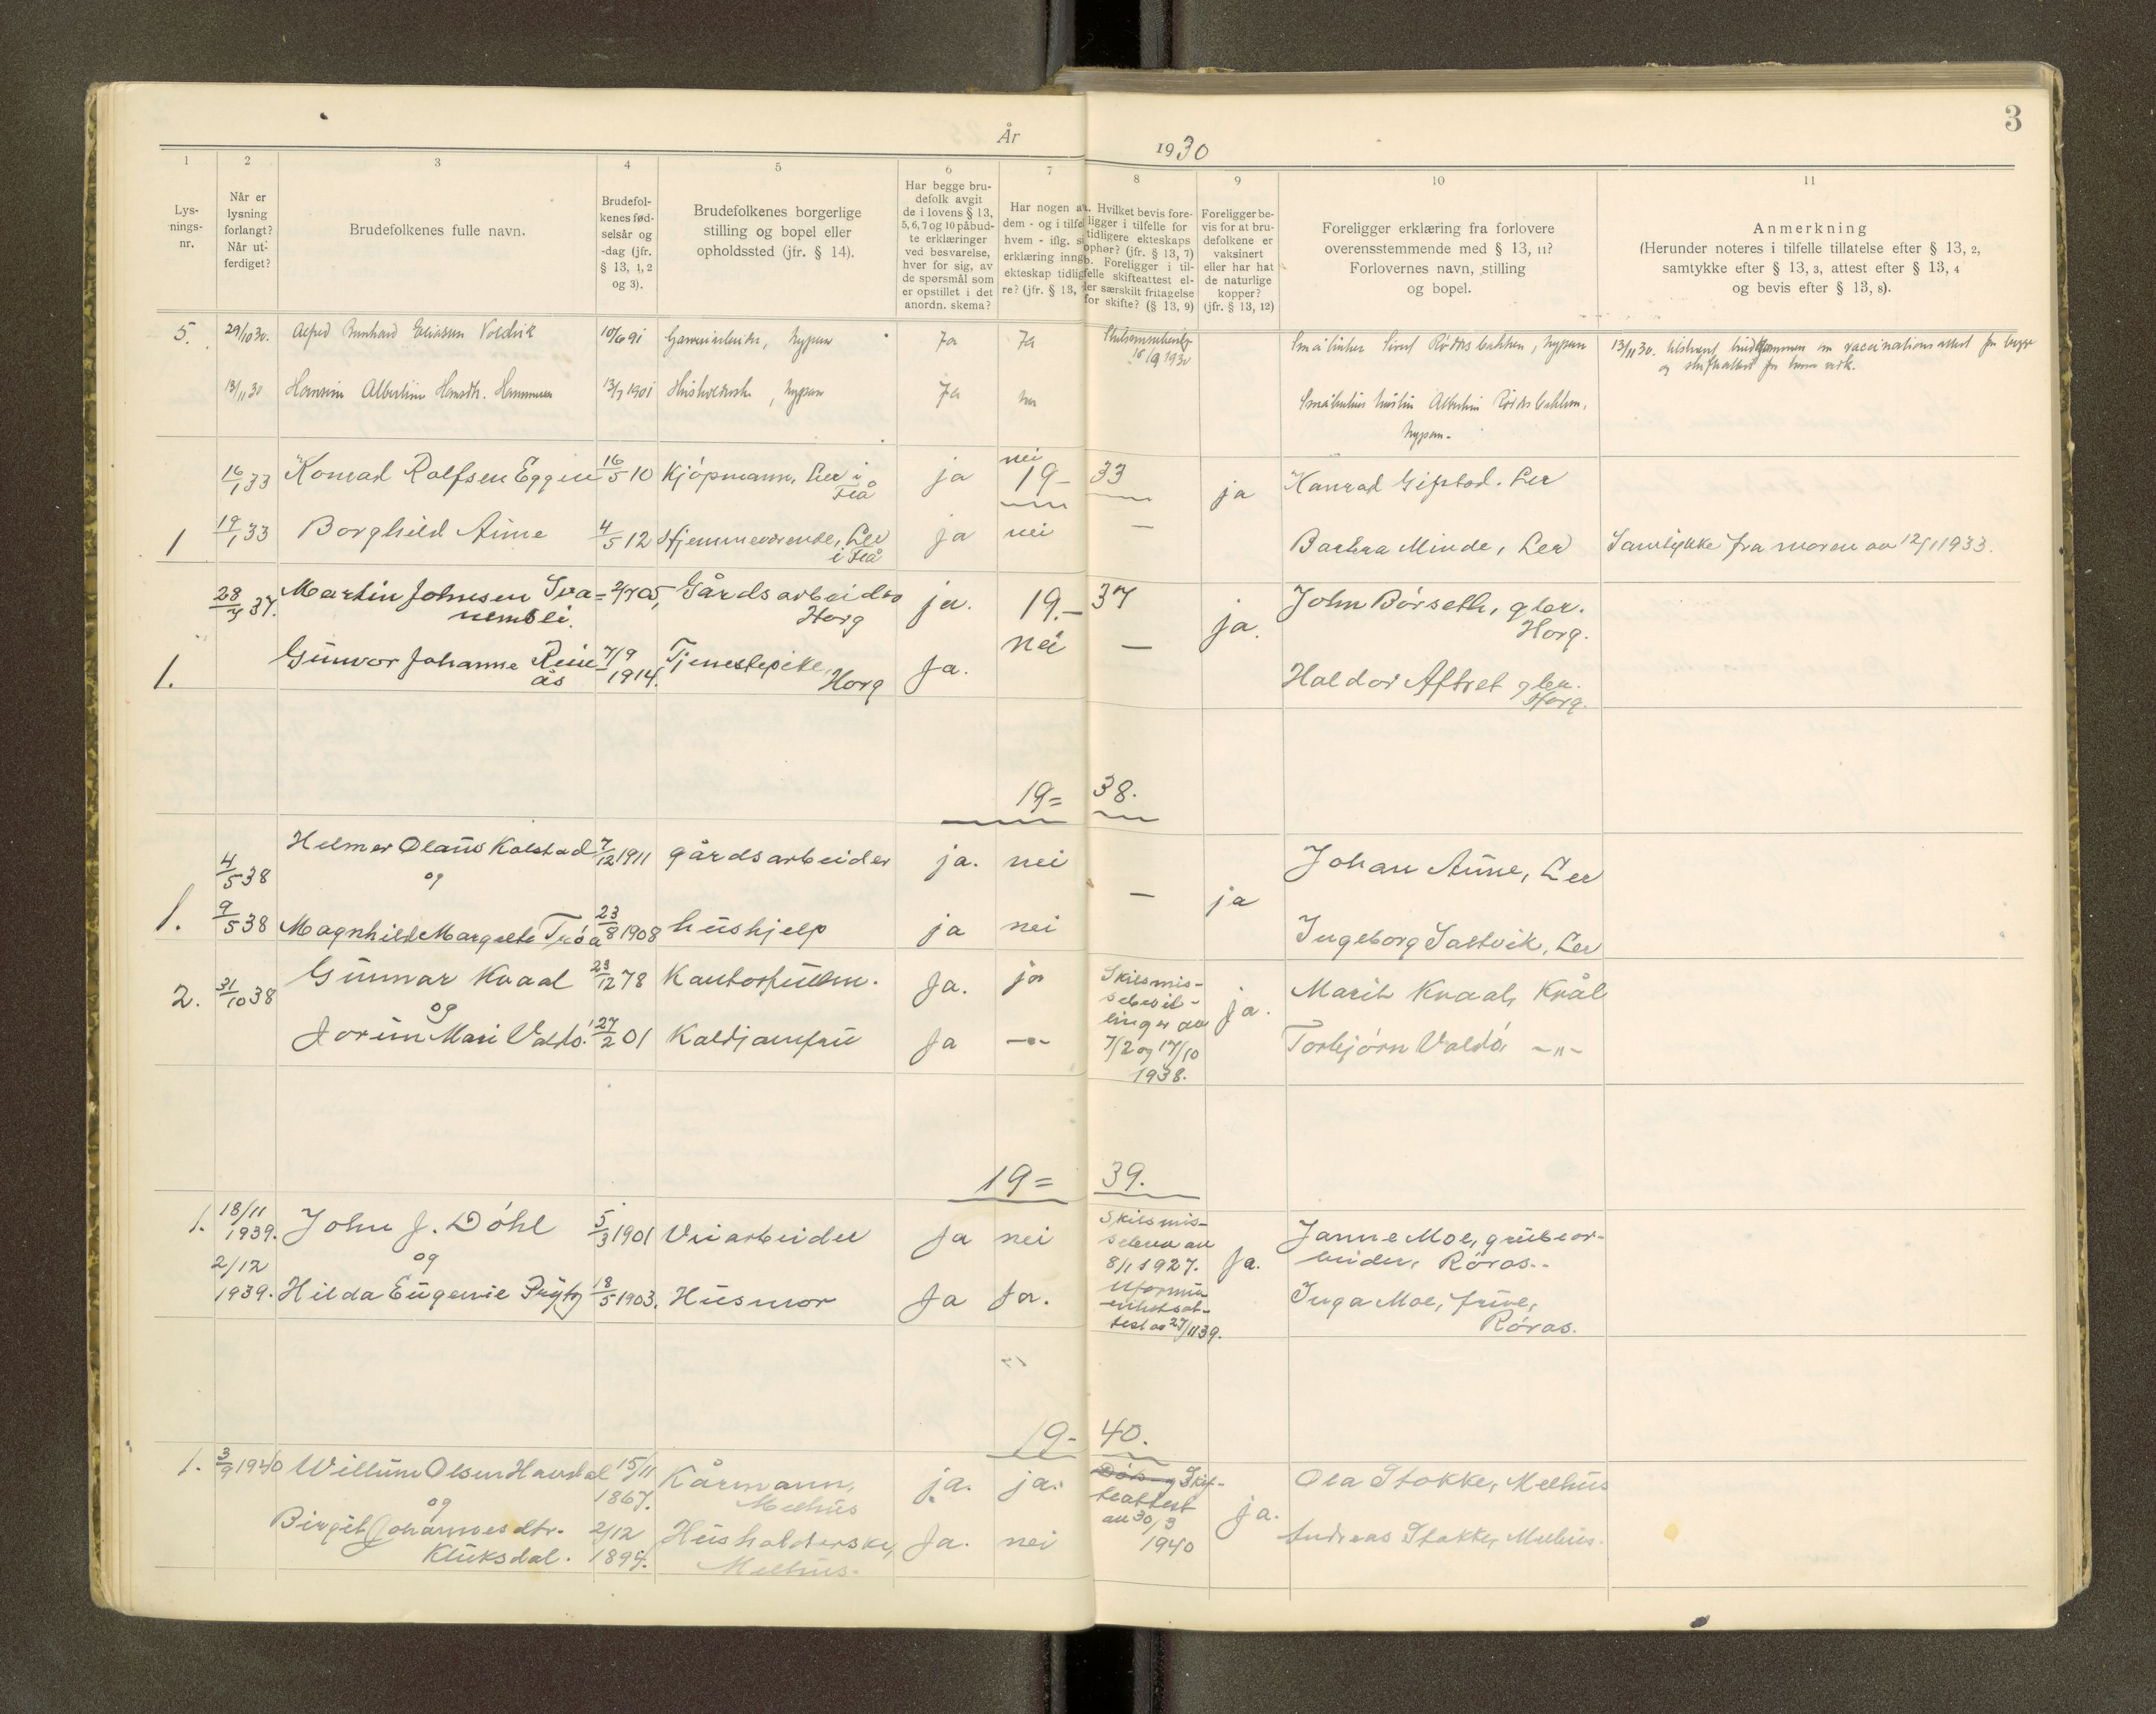 3
År 1930
1 2 3 4 5 6 7 8 9 10 11
Lys-
nings-
nr.
Når er
lysning
forlangt?
Når ut-
ferdiget?
Brudefolkenes fulle navn.
Brudefol-
kenes fød-
selsår og
-dag (jfr.
§ 13, 1, 2
og 3).
Brudefolkenes borgerlige
stilling og bopel eller
opholdssted (jfr. § 14).
Har begge bru-
defolk avgit
de i lovens § 13,
5, 6, 7 og 10 påbud-
te erklæringer
ved besvarelse,
hver for sig, av
de spørsmål som
er opstillet i det
anordn. skema?
Har nogen a
dem - og i tilfel
hvem - iflg. s
erklæring inng
ekteskap tidlig
re? (jfr. § 13,
Hvilket bevis fore-
ligger i tilfelle for
tidligere ekteskaps
ophør? (jfr. § 13, 7)
Foreligger i til-
felle skifteattest el-
ler særskilt fritagelse
for skifte? (§ 13, 9)
Foreligger be-
vis for at bru-
defolkene er
vaksinert
eller har hat
de naturlige
kopper?
(jfr. § 13, 12)
Foreligger erklæring fra forlovere
overensstemmende med § 13, 11?
Forlovernes navn, stilling
og bopel.
Anmerkning
(Herunder noteres i tilfelle tillatelse efter § 13, 2,
samtykke efter § 13, 3, attest efter § 13, 4
og bevis efter § 13, 8).
5. 29/10 30. Alfred Bernhard Eliassen Voldvik 10/6 91 Ja Ja
18/9 1930
13/11 30 Albertine Hansdtr. 13/7 1901 Ja nei
nei
16/1 33 Konrad Rolfsen Eggen 16/5 10 Kjöpmann, Ler i ja 19- 33 ja Konrad Gipstad. Ler
Flå
1 19/1 33 Borghild Aune 4/5 12 Hjemmeværende, Ler ja nei — Barbra Minde, Ler Samtykke fra moren av 12/1 1933.
i Flå
28/3 37. Martin Johnsen Sva= 2/7 05, Gårdsarbeider ja. 19.- 37 ja. John Börseth, gbr.
nembli. Horg Horg.
1. Gunvor Johanne Rein- 7/9 Tjenestepike, Ja. nei — Haldor Aftret gbr.
ås 1914. Horg Horg.
19= 38.
4/5 38 Helmer Olaus Kolstad 7/12 1911 gårdsarbeider ja. nei Johan Aune, Ler
og — ja
1. 9/5 38 Magnhild Margrete Tröa 23/8 1908 hushjelp ja nei Ingeborg Saltvik, Ler
2. 31/10 38 Gunnar Kvaal 23/12 78 Kantorfullm. Ja. ja Skilsmis- ja. Marit Kvaal, Kvål
og sebevil-
linger av
Jorun Mari Valdö. 27/2 01 Koldjomfru Ja -"- 7/2 og 17/10 Torbjörn Valdö -"-
1938.
19= 39.
1. 18/11 1939. John J. Döhl 5/3 1901 Veiarbeider Ja nei Skilsmis- Ja. Janne Moe, grubear-
og 8/1 1927. beider, Röros..
2/12
1939. Hilda Eugenie Prytz 18/5 1903. Husmor Ja Ja. Inga Moe, frue,
27/11 39. Röros.
19- 40.
1. 3/9 1940 Willum Olsen Havdal 15/11 Kårmann, ja. ja. Skif- ja. Ola Stokke, Melhus
og 1867. Melhus teattest
Birgit Johannesdtr. 2/12 Husholderske, Ja. nei av 30/3 Andreas Stokke, Melhus.
Kluksdal. 1894. Melhus. 1940